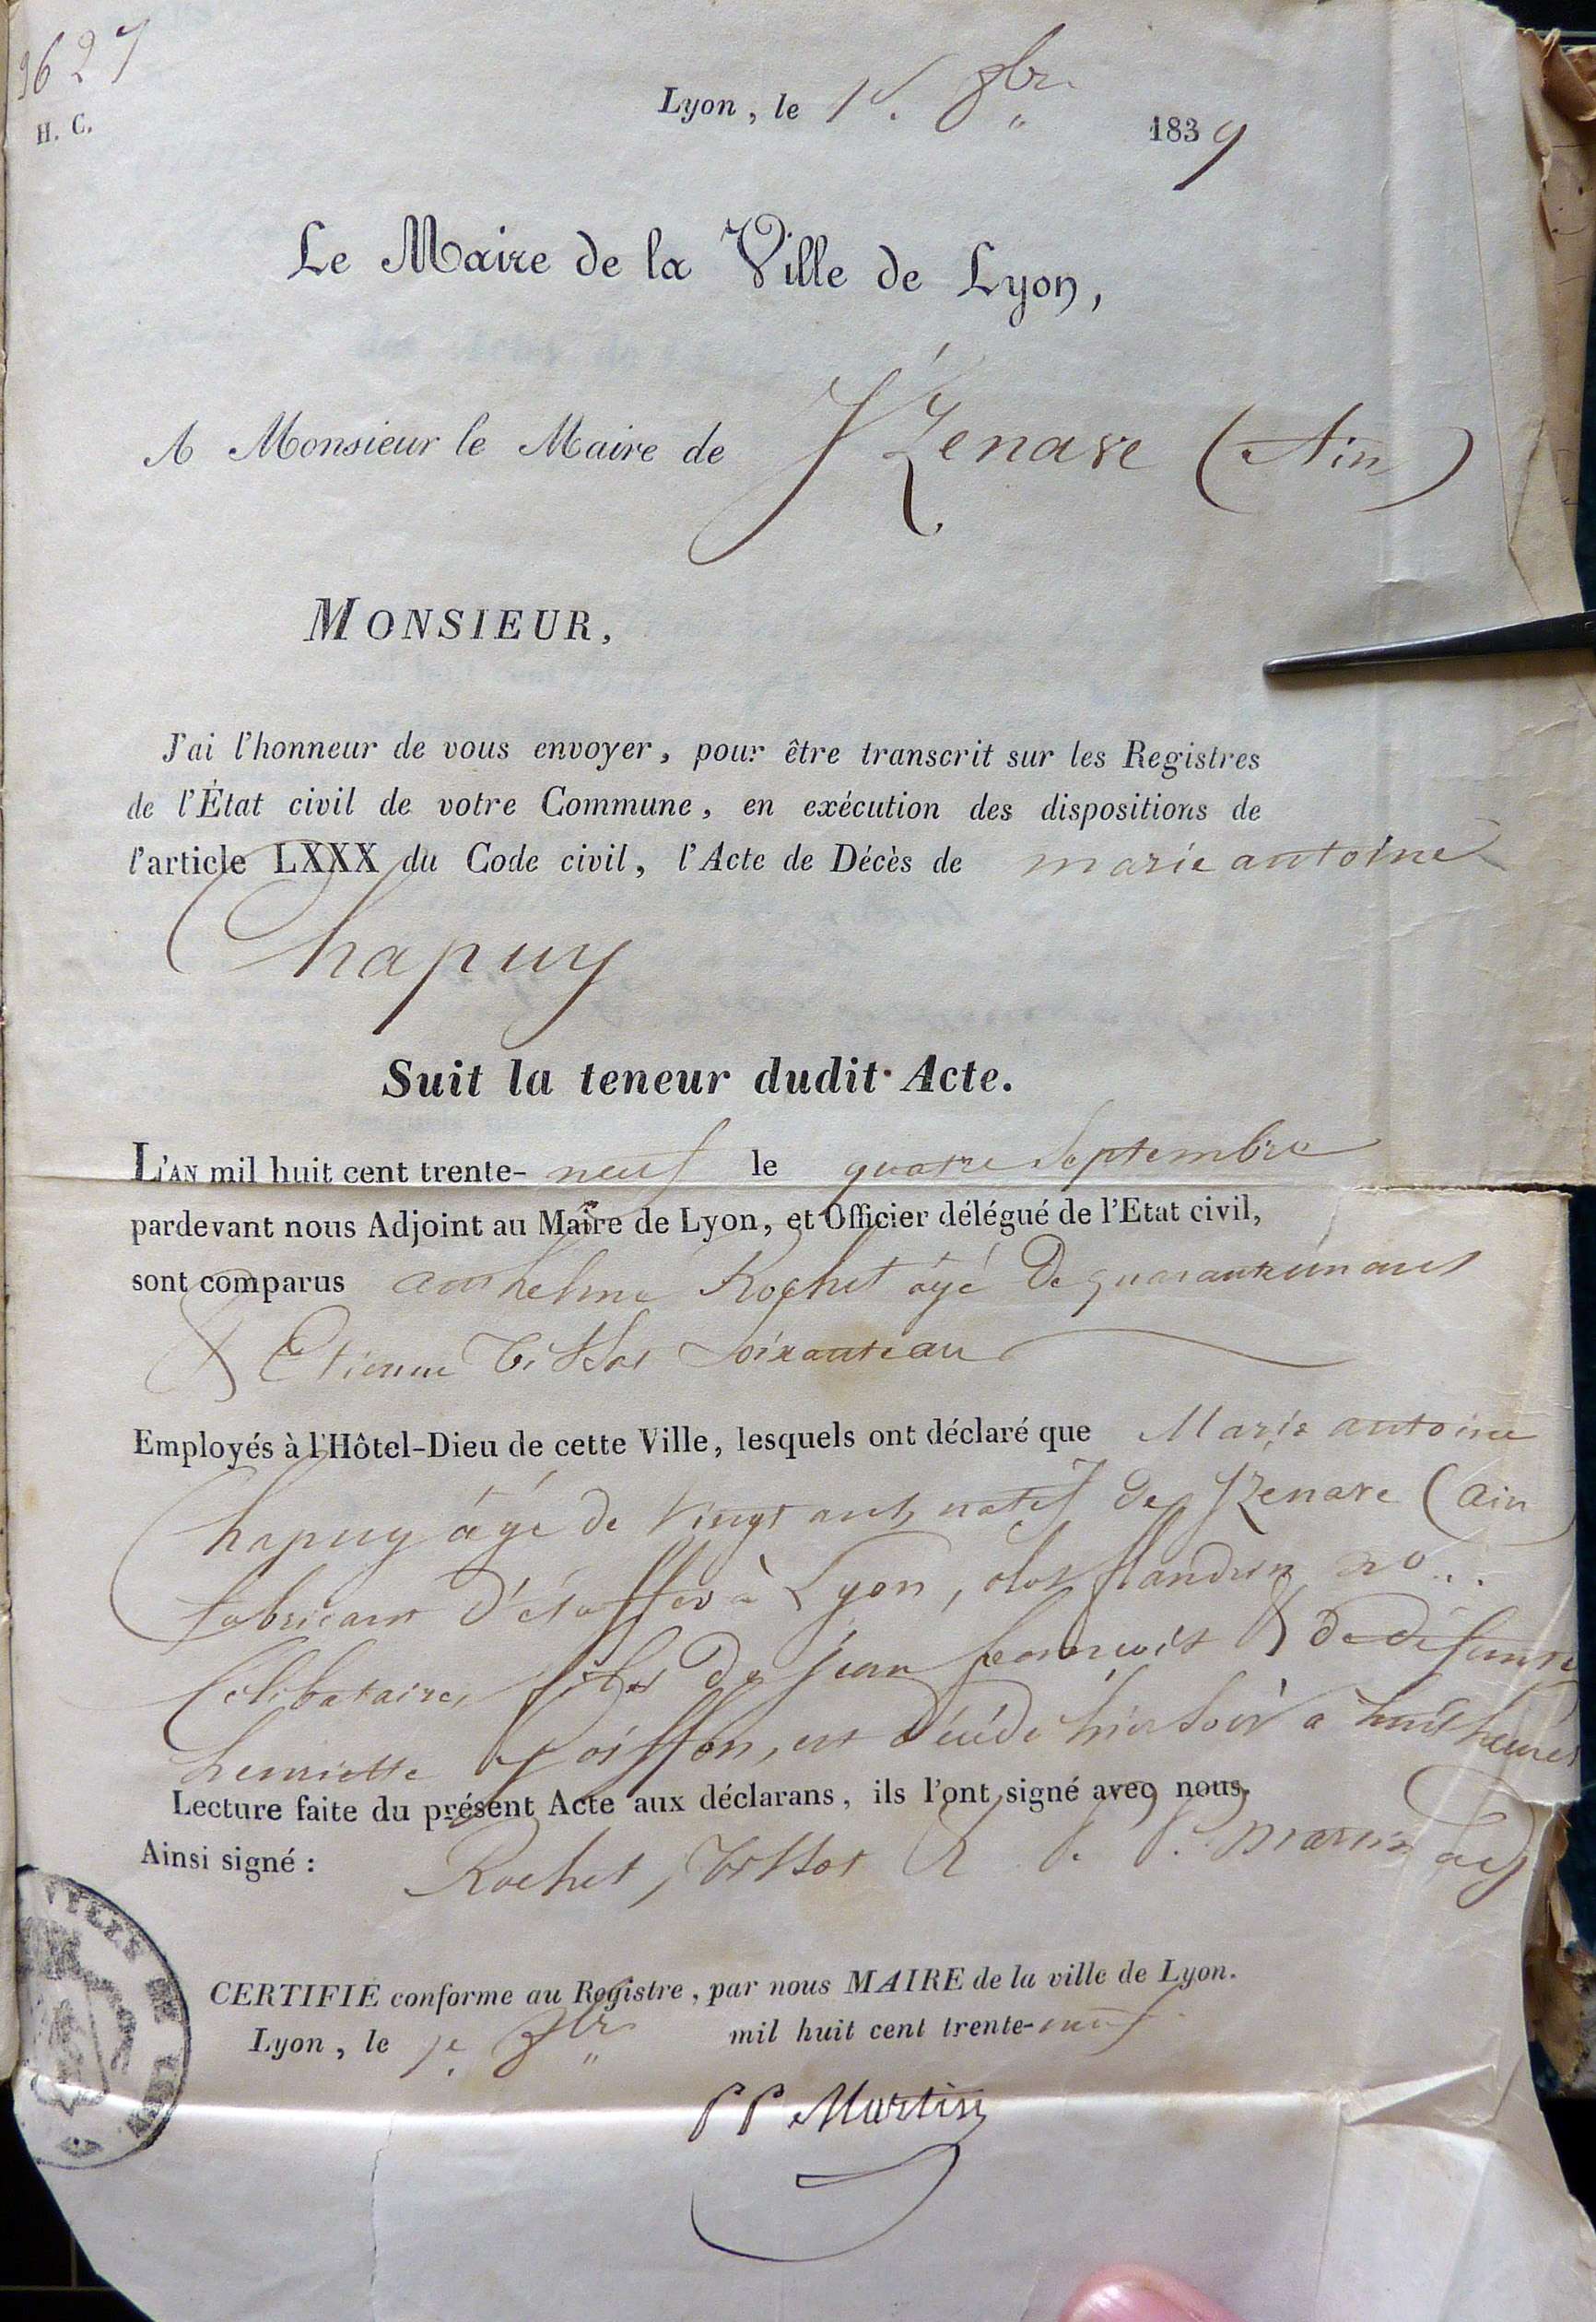 3627
H. C.
Lyon, le 1er. 8bre 1839
Le Maire de la Ville de Lyon,
A Monsieur le Maire de Izenave (Ain)
MONSIEUR,
J'ai l'honneur de vous envoyer, pour être transcrit sur les Registres
de l'État civil de votre Commune, en exécution des dispositions de
l'article LXXX du Code civil, l'Acte de Décès de marie antoine
Chapuy
Suit la teneur dudit Acte.
L'AN mil huit cent trente-neuf le quatre Septembre
pardevant nous Adjoint au Maire de Lyon, et Officier délégué de l'Etat civil,
sont comparus anthelme Rochet âgé de quarante un ans
& Etienne Tissot Soixante ans
Employés à l'Hôtel-Dieu de cette Ville, lesquels ont déclaré que Marie antoine
Chapuy âgé de vingt ans, natif de Izenave (ain
fabricant d'étoffes à Lyon, clos flandrin no..
Célibataire, fils de jean francois & de défunte
henriette Goiffon, est décédé hier Soir à huit heures
Lecture faite du présent Acte aux déclarans, ils l'ont signé avec nous.
Ainsi signé : Rochet, Tissot & P. P. Martin adj
CERTIFIÉ conforme au Registre, par nous MAIRE de la ville de Lyon.
Lyon, le 1er. 8bre mil huit cent trente-neuf
PP Martin
VILLE DE LYON